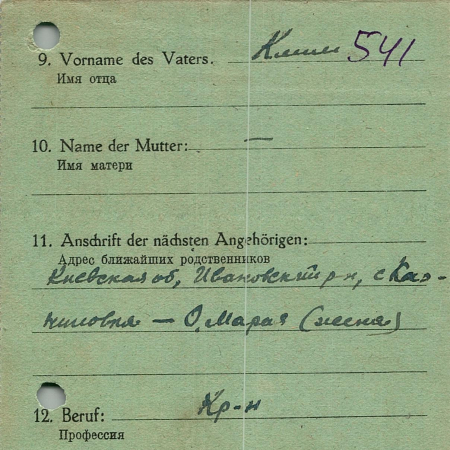 9. Vorname des Vaters. Клим 541
Имя отца
10. Name der Mutter: —
Имя матери
11. Anschrift der nächsten Angehörigen:
Адрес ближайших родственников
Киевская об, Ивановский р-н, с
— О. Мария (жена)
12. Beruf: Кр-н
Профессия